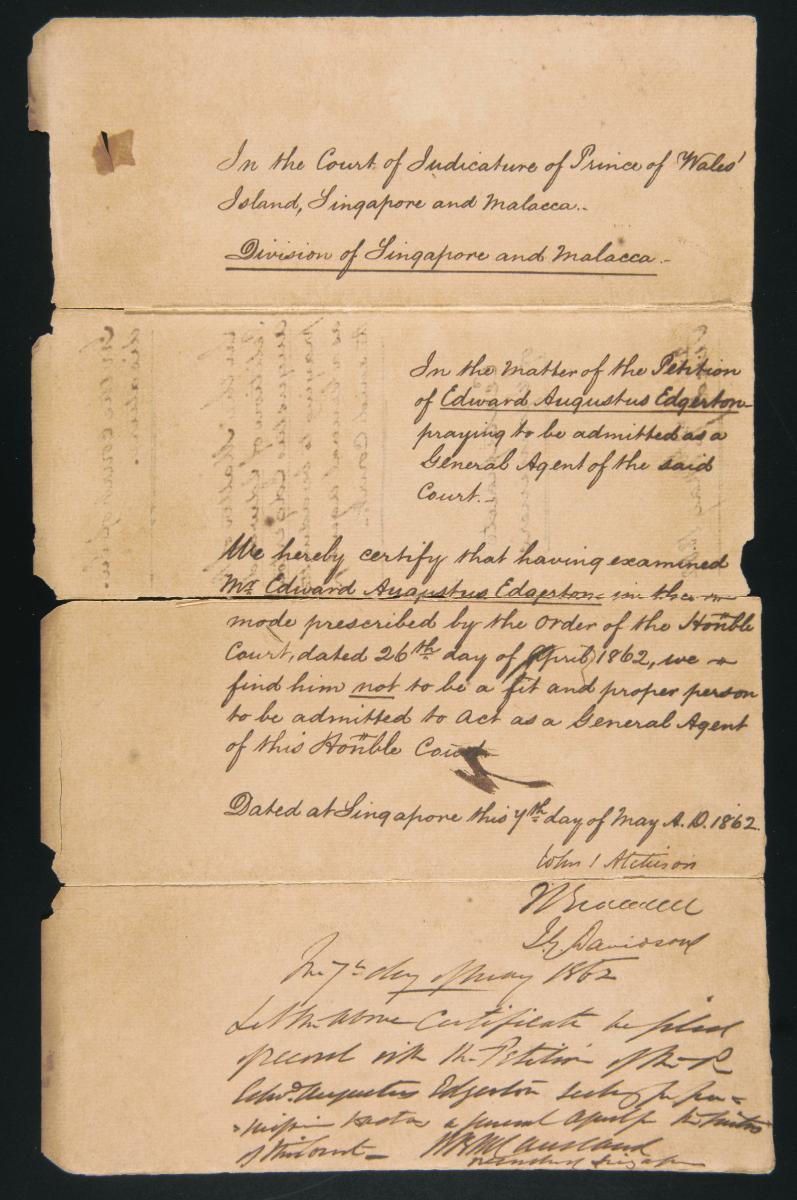 In the Court of Judicature of Prince of Wales'
Island, Singapore and Malacca.-
Division of Singapore and Malacca.-
In the Matter of the Petition
of Edward Augustus Edgerton
praying to be admitted as a
General Agent of the said
Court.-
We hereby certify that having examined
Mr Edward Augustus Edgerton - in the
mode prescribed by the Order of the Honble
Court, dated 26th day of April 1862, we
find him not to be a fit and proper person
to be admitted to act as a General Agent
of this Honble Court
Dated at Singapore this 7th day of May A.D. 1862.
John Atchison
J.G. Davidson
The 7th day of May 1862
Let the above Certificate be filed
of record with the Petition of
Edwd. Augustus Edgerton seeking for per=
=mission to act as a general agent
of this Court -